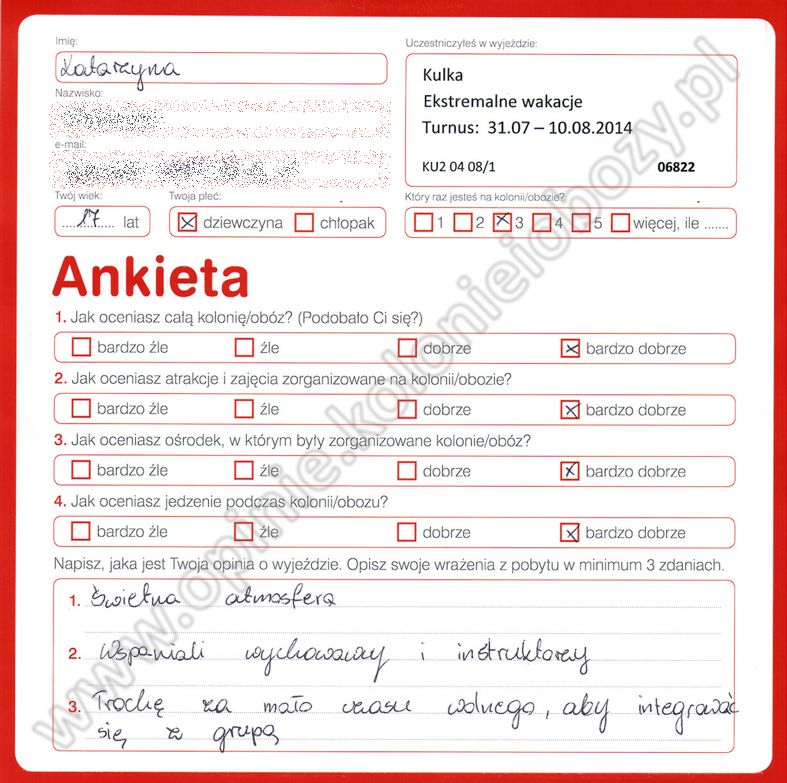 Imię:
Katarzyna
Nazwisko:
e-mail:
Twój wiek:
17 lat
Twoja płeć:
dziewczyna chłopak
Uczestniczyłeś w wyjeździe:
Kulka
Ekstremalne wakacje
Turnus: 31.07 – 10.08.2014
KU2 04 08/1 06822
Który raz jesteś na kolonii/obozie?
1 2 3 4 5 więcej, ile .......
Ankieta
1. Jak oceniasz całą kolonię/obóz? (Podobało Ci się?)
bardzo źle źle dobrze bardzo dobrze
2. Jak oceniasz atrakcje i zajęcia zorganizowane na kolonii/obozie?
bardzo źle źle dobrze bardzo dobrze
3. Jak oceniasz ośrodek, w którym były zorganizowane kolonie/obóz?
bardzo źle źle dobrze bardzo dobrze
4. Jak oceniasz jedzenie podczas kolonii/obozu?
bardzo źle źle dobrze bardzo dobrze
Napisz, jaka jest Twoja opinia o wyjeździe. Opisz swoje wrażenia z pobytu w minimum 3 zdaniach.
1. Świetna atmosfera
2. Wspaniali wychowawcy i instruktorzy
3. Trochę za mało czasu wolnego, aby integrować
się z grupą
www.opinie.kolonieiobozy.pl